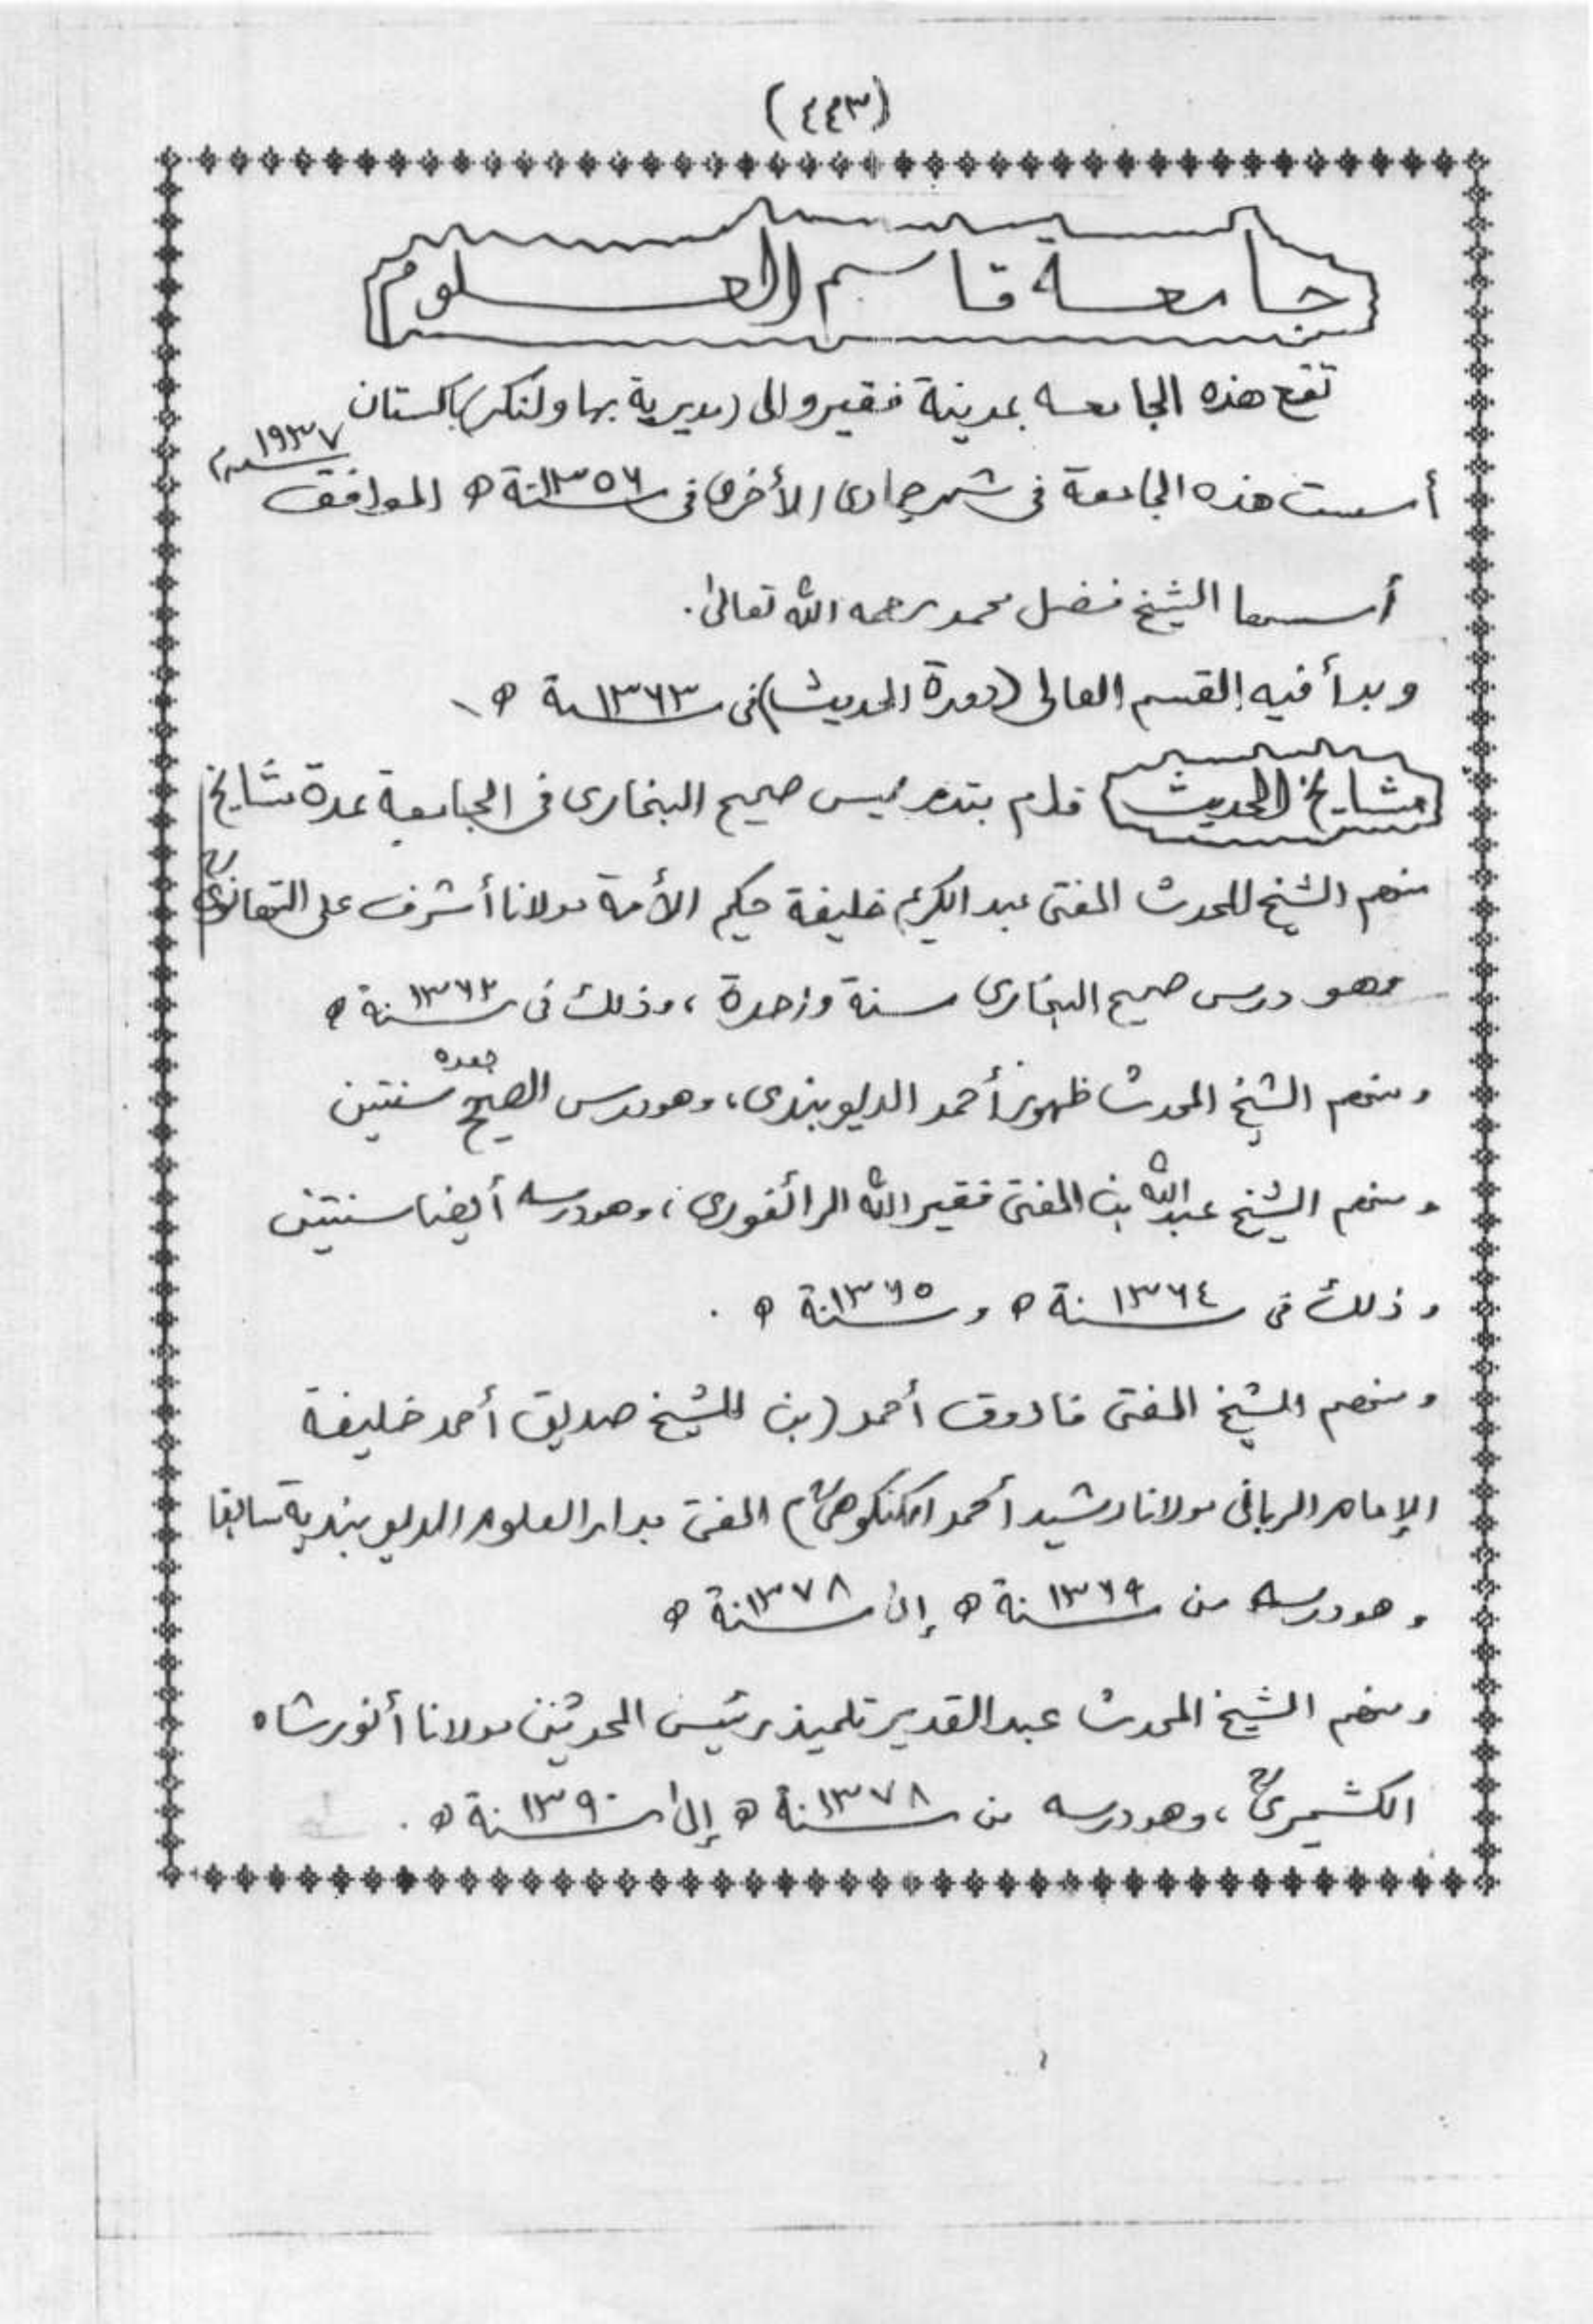 (٤٤٣)
جامعة قاسم العلوم
تقع هذه الجامعه بمدينة فقيروالى (مديرية بهاولنكر) باكستان
أسست هذه الجامعة فى شهر جمادى الأخرى فى سنة ١٣٥٦ ه الموافق سنة ١٩٣٧م
أسسها الشيخ فضل محمد رحمه الله تعالىٰ.
وبدأ فيه القسم العالى (دورة الحديث) فى سنة ١٣٦٣ ه
مشايخ الحديث قام بتدريس صحيح البخارى فى الجامعة عدة مشايخ
منهم الشيخ المحدث المفتى عبد الكريم خليفة حكيم الأمة مولانا أشرف على التهانوىؒ
وهو درس صحيح البخارى سنة واحدة ، وذلك فى سنة ١٣٦٢ ه
ومنهم الشيخ المحدث ظهور أحمد الديوبندى، وهو درس الصحيح بعده سنتين
ومنهم الشيخ عبد الله بن المفتى فقير الله الرائفورى ، وهو درسه أيضا سنتين
وذلك فى سنة ١٣٦٤ ه و سنة ١٣٦٥ ه .
ومنهم الشيخ المفتى فاروق أحمد (بن الشيخ صديق أحمد خليفة
الإمام الربانى مولانا رشيد أحمد الكنكوهىؒ) المفتى بدار العلوم الديوبندية سابقا
وهو درسه من سنة ١٣٦٩ ه إلى سنة ١٣٧٨ ه
ومنهم الشيخ المحدث عبد القدير تلميذ رئيس المحدثين مولانا أنور شاه
الكشميرىؒ ، وهو درسه من سنة ١٣٧٨ ه إلىٰ سنة ١٣٩٠ ه .